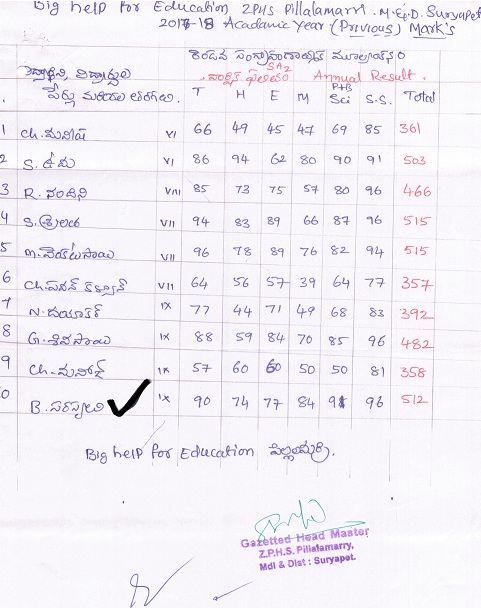 Big help for Education ZPHS Pillalamarri. M&D. Suryapet
2017-18 Acadamic year (Previous) Mark's
SA2
వార్షిక ఫలితం Annual Result.
విద్యార్థుల
పేర్లు మరియు తరగతి. T H E M P+B Sci S.S. Total
1 Ch. మనీష VI 66 49 45 47 69 85 361
2 S. ఉమ VI 86 94 62 80 90 91 503
3 R. నందిని VIII 85 73 75 57 80 96 466
4 S. శ్రీలత VII 94 83 89 66 87 96 515
5 m. VII 96 78 89 76 82 94 515
6 Ch. పవన్ కళ్యాణ్ VII 64 56 57 39 64 77 357
7 N. దయాకర్ IX 77 44 71 49 68 83 392
8 G. శివసాయి IX 88 59 84 70 85 96 482
9 Ch. మనోజ్ IX 57 60 60 50 50 81 358
0 B. IX 90 74 77 84 91 96 512
Big help for Education పిల్లలమర్రి.
Gazetted Head Master
Z.P.H.S. Pillalamarry,
Mdl & Dist : Suryapet.